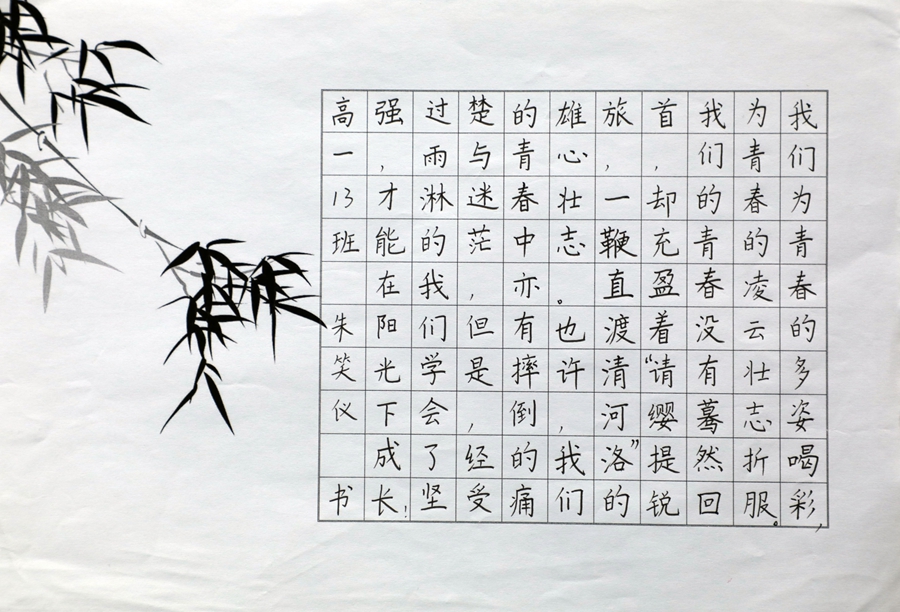 我们为青春的多姿喝彩，
为青春的凌云壮志折服。
我们的青春没有蓦然回
首，却充盈着“请缨提锐
旅，一鞭直渡清河洛”的
雄心壮志。也许，我们
的青春中亦有摔倒的痛
楚与迷茫，但是，经受
过雨淋的我们学会了坚
强，才能在阳光下成长！
高一13班 朱笑仪 书